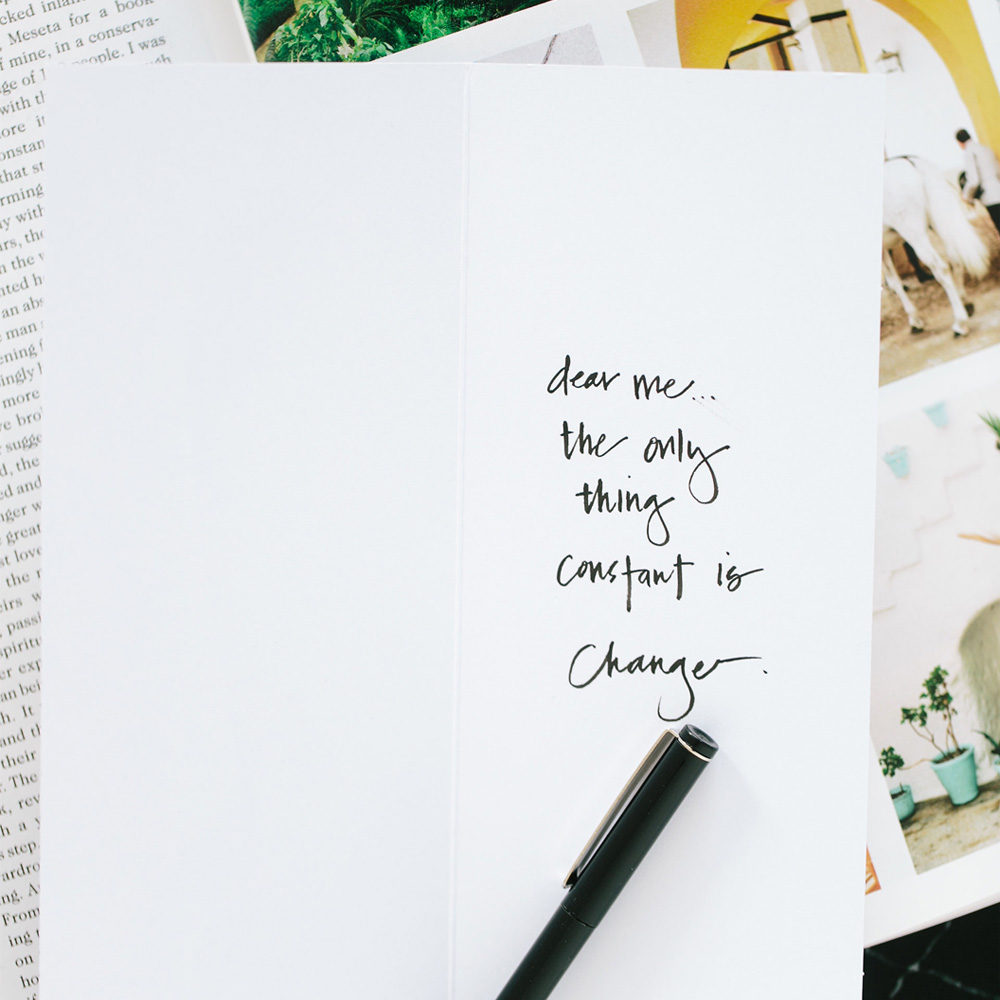 cked inlan
Meseta for a book
mine, in a conserva-
people. I was
with
constan
that st
rming
with
the
in the
an abs
man
ening
ingly
more
bro
sugge
the
ed and
nger w
great
st love
the
eirs w
passi
spiritu
er exp
an bei
h. It
and th
their
The
rev
h a
step
ardro
ng. A
From
ing
on
ho
dear me...
the only
thing
constant is
Change.